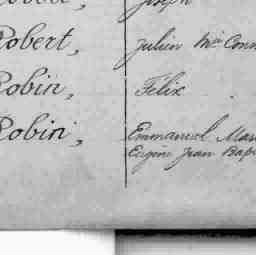 Joseph
Robert, Julien Mie Conn
Robin, Félix
Robin, Emmanuel Mar
Eugène Jean Bap